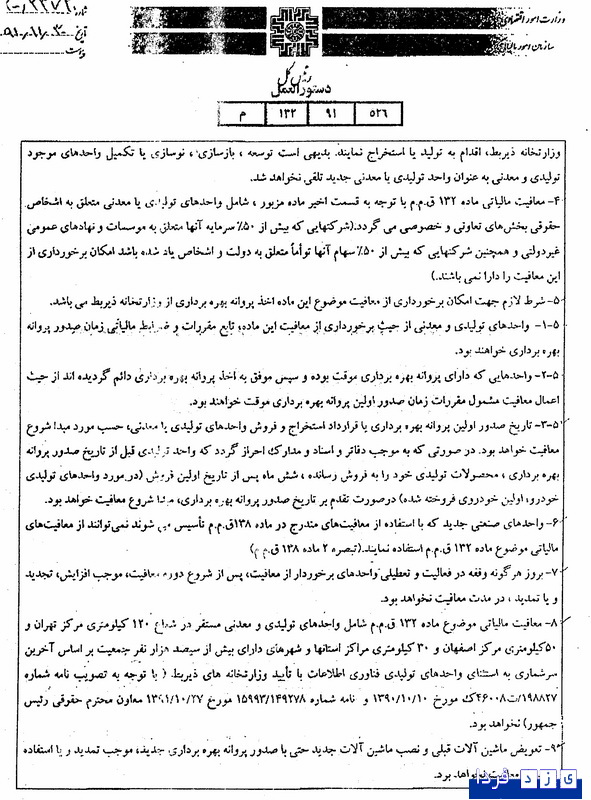 وزارت امور اقتصادی
سازمان امور مالیاتی
شماره
تاریخ
پیوست
دستورالعمل
۵۲۶ ۹۱ ۱۳۲ م
وزارتخانه ذیربط، اقدام به تولید یا استخراج نمایند. بدیهی است توسعه ، بازسازی ، نوسازی یا تکمیل واحدهای موجود
تولیدی و معدنی به عنوان واحد تولیدی یا معدنی جدید تلقی نخواهد شد.
۴- معافیت مالیاتی ماده ۱۳۲ ق.م.م با توجه به قسمت اخیر ماده مزبور ، شامل واحدهای تولیدی یا معدنی متعلق به اشخاص
حقوقی بخش‌های تعاونی و خصوصی می گردد.(شرکتهایی که بیش از ۵۰٪ سرمایه آنها متعلق به موسسات و نهادهای عمومی
غیردولتی و همچنین شرکتهایی که بیش از ۵۰٪ سهام آنها توأماً متعلق به دولت و اشخاص یاد شده باشد امکان برخورداری از
این معافیت را دارا نمی باشند.)
۵- شرط لازم جهت امکان برخورداری از معافیت موضوع این ماده اخذ پروانه بهره برداری از وزارتخانه ذیربط می باشد.
۵-۱- واحدهای تولیدی و معدنی از حیث برخورداری از معافیت این ماده، تابع مقررات و ضوابط مالیاتی زمان صدور پروانه
بهره برداری خواهند بود.
۵-۲- واحدهایی که دارای پروانه بهره برداری موقت بوده و سپس موفق به اخذ پروانه بهره برداری دائم گردیده اند از حیث
اعمال معافیت مشمول مقررات زمان صدور اولین پروانه بهره برداری موقت خواهند بود.
۵-۳- تاریخ صدور اولین پروانه بهره برداری یا قرارداد استخراج و فروش واحدهای تولیدی یا معدنی، حسب مورد مبدا شروع
معافیت خواهد بود. در صورتی که به موجب دفاتر و اسناد و مدارک احراز گردد که واحد تولیدی قبل از تاریخ صدور پروانه
بهره برداری ، محصولات تولیدی خود را به فروش رسانده ، شش ماه پس از تاریخ اولین فروش (در مورد واحدهای تولیدی
خودرو، اولین خودروی فروخته شده) درصورت تقدم بر تاریخ صدور پروانه بهره برداری، مبدا شروع معافیت خواهد بود.
۶- واحدهای صنعتی جدید که با استفاده از معافیت‌های مندرج در ماده ۱۳۸ق.م.م تأسیس می شوند نمی‌توانند از معافیت‌های
مالیاتی موضوع ماده ۱۳۲ ق.م.م استفاده نمایند.(تبصره ۲ ماده ۱۳۸ ق.م م)
۷- بروز هرگونه وقفه در فعالیت و تعطیلی واحدهای برخوردار از معافیت، پس از شروع دوره معافیت، موجب افزایش، تجدید
و یا تمدید ، در مدت معافیت نخواهد بود.
۸- معافیت مالیاتی موضوع ماده ۱۳۲ ق.م.م شامل واحدهای تولیدی و معدنی مستقر در شعاع ۱۲۰ کیلومتری مرکز تهران و
۵۰کیلومتری مرکز اصفهان و ۳۰ کیلومتری مراکز استانها و شهرهای دارای بیش از سیصد هزار نفر جمعیت بر اساس آخرین
سرشماری به استثنای واحدهای تولیدی فناوری اطلاعات با تأیید وزارتخانه های ذیربط ( با توجه به تصویب نامه شماره
۱۹۸۸۲۷/ت۴۶۰۰۸ک مورخ ۱۳۹۰/۱۰/۱۰ و نامه شماره ۱۵۹۹۳/۱۴۹۲۷۸ مورخ ۱۳۹۱/۱۰/۲۷ معاون محترم حقوقی رئیس
جمهور) نخواهد بود.
۹- تعویض ماشین آلات قبلی و نصب ماشین آلات جدید حتی با صدور پروانه بهره برداری جدید، موجب تمدید و یا استفاده
معافیت نخواهد بود.
یزد فردا